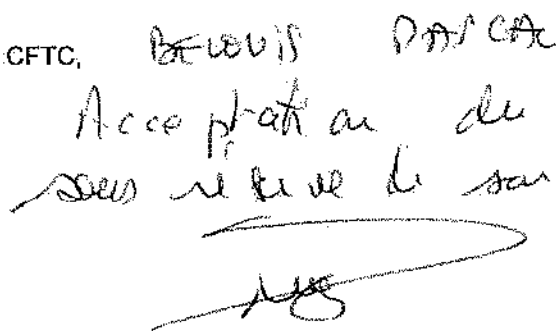 CFTC, BELOUIS PASCAL
Acceptation du
sous réserve de son